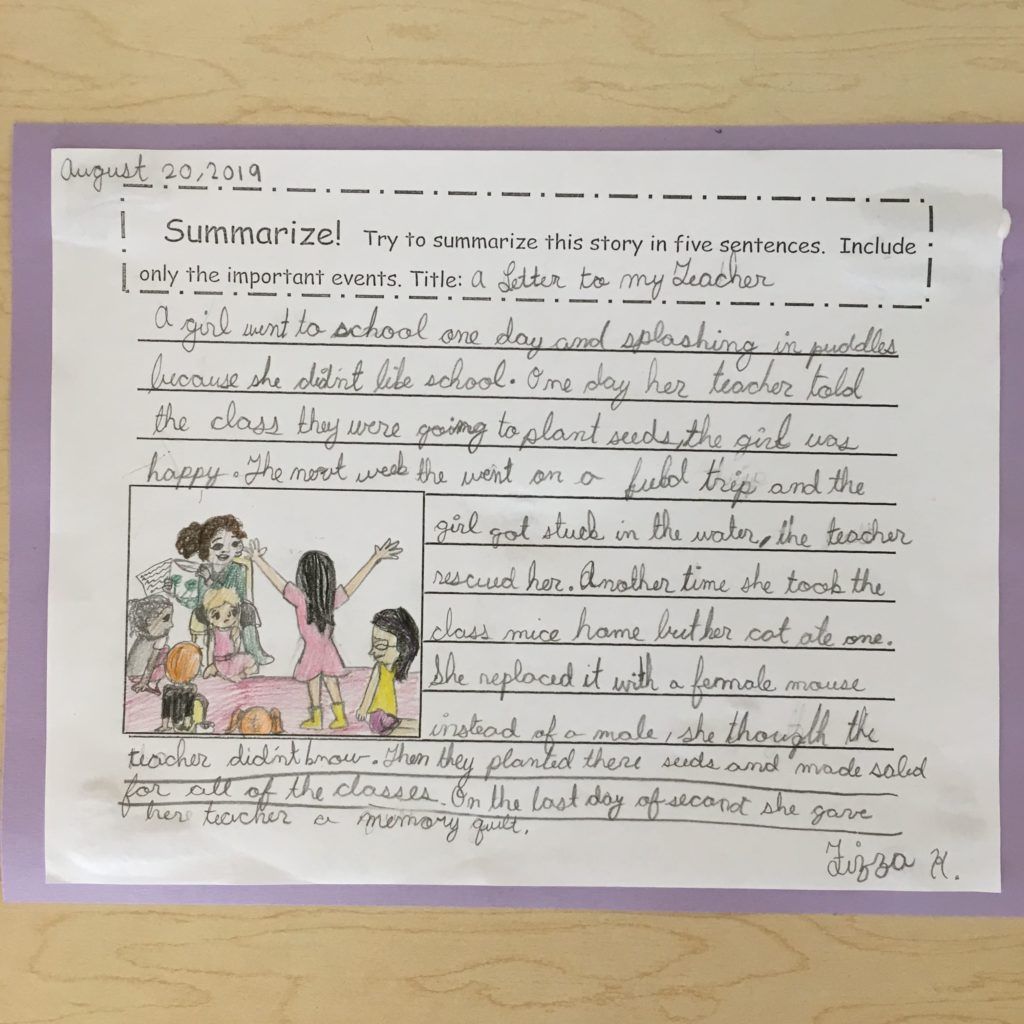 August 20, 2019
Summarize! Try to summarize this story in five sentences. Include
only the important events. Title: A Letter to my Teacher
A girl went to school one day and splashing in puddles
because she did'nt like school. One day her teacher told
the class they were going to plant seeds, the girl was
happy. The next week the went on a field trip and the
girl got stuck in the water, the teacher
rescued her. Another time she took the
class mice home but her cat ate one.
She replaced it with a female mouse
instead of a male, she though the
teacher did'nt know. Then they planted there seeds and made salad
for all of the classes. On the last day of second she gave
her teacher a memory quilt.
Fizza H.